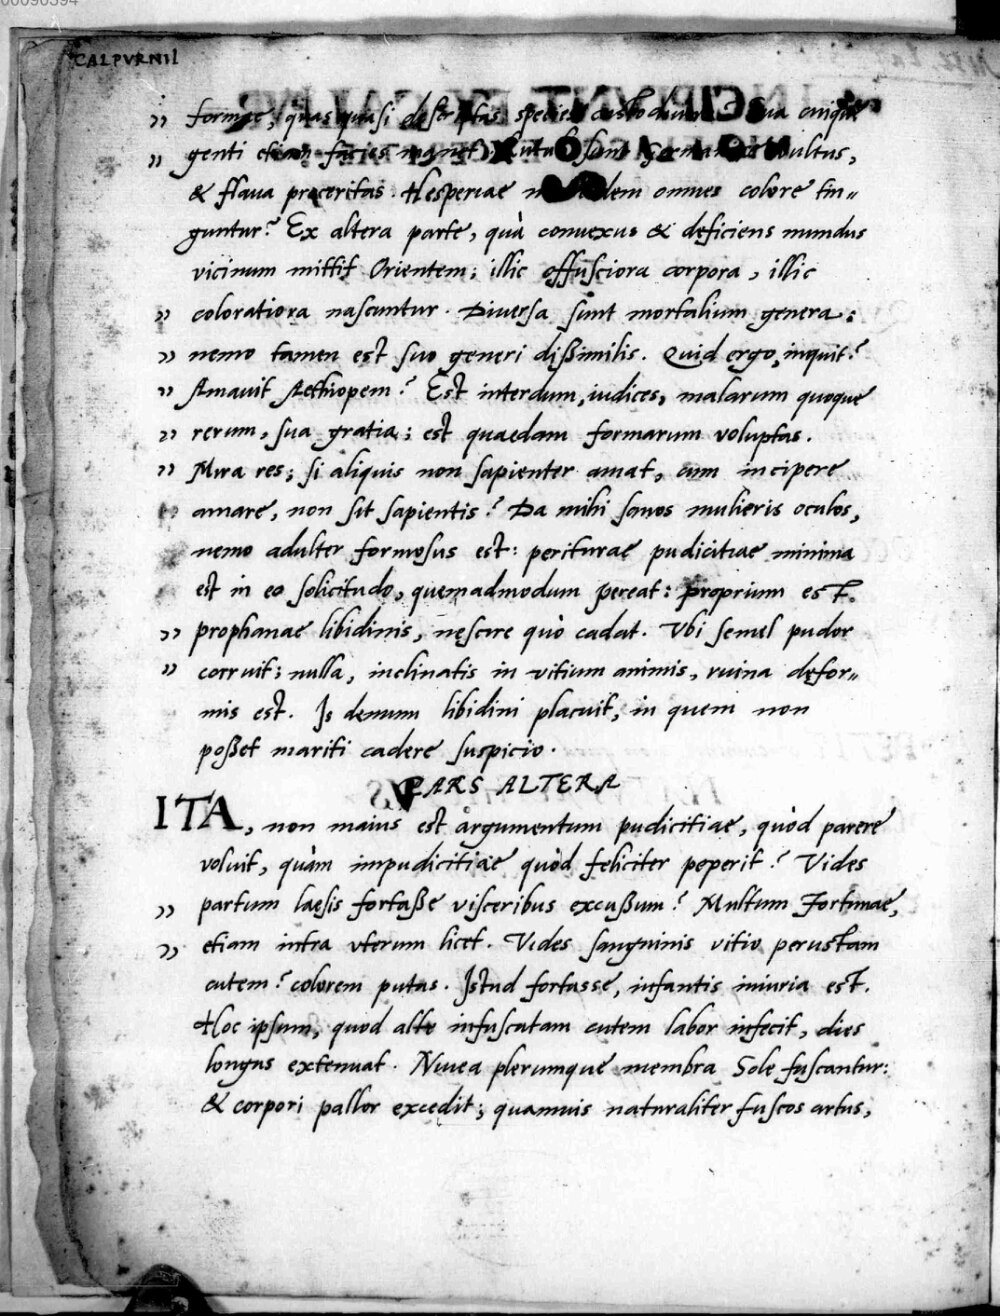 00096394
CALPVRNII
" formae, quas quasi descriptas species custodiunt. Sua cuique
" genti etiam facies manet. Rutili sunt Germaniae vultus,
& flaua proceritas. Hesperiae omnes colore tin=
guntur? Ex altera parte, quà conuexus & deficiens mundus
vicinum mittit Orientem; illic offusciora corpora, illic
" coloratiora nascuntur. Diuersa sunt mortalium genera:
" nemo tamen est suo generi dißimilis. Quid ergo, inquit?
" Amauit Aethiopem? Est interdum, iudices, malarum quoque
" rerum, sua gratia; est quaedam formarum voluptas.
" Mira res; si aliquis non sapienter amat, cum incipere
" amare, non sit sapientis? Da mihi sanos mulieris oculos,
nemo adulter formosus est: periturae pudicitiae minima
est in eo solicitudo, quemadmodum pereat: proprium est.
" prophanae libidinis, nescire quò cadat. Vbi semel pudor
" corruit; nulla, inclinatis in vitium animis, ruina defor=
mis est. Is demum libidini placuit, in quem non
poßet mariti cadere suspicio.
PARS ALTERA
ITA, non maius est argumentum pudicitiae, quòd parere
voluit, quàm impudicitiae quòd feliciter peperit? Vides
" partum laesis fortaße visceribus excußum? Multum Fortunae,
" etiam intra vterum licet. Vides sanguinis vitio perustam
cutem? colorem putas. Istud fortasse, infantis iniuria est.
Hoc ipsum, quod alte infuscatam cutem labor infecit, dies
longus extenuat. Niuea plerumque membra Sole fuscantur:
& corpori pallor excedit; quamuis naturaliter fuscos artus,